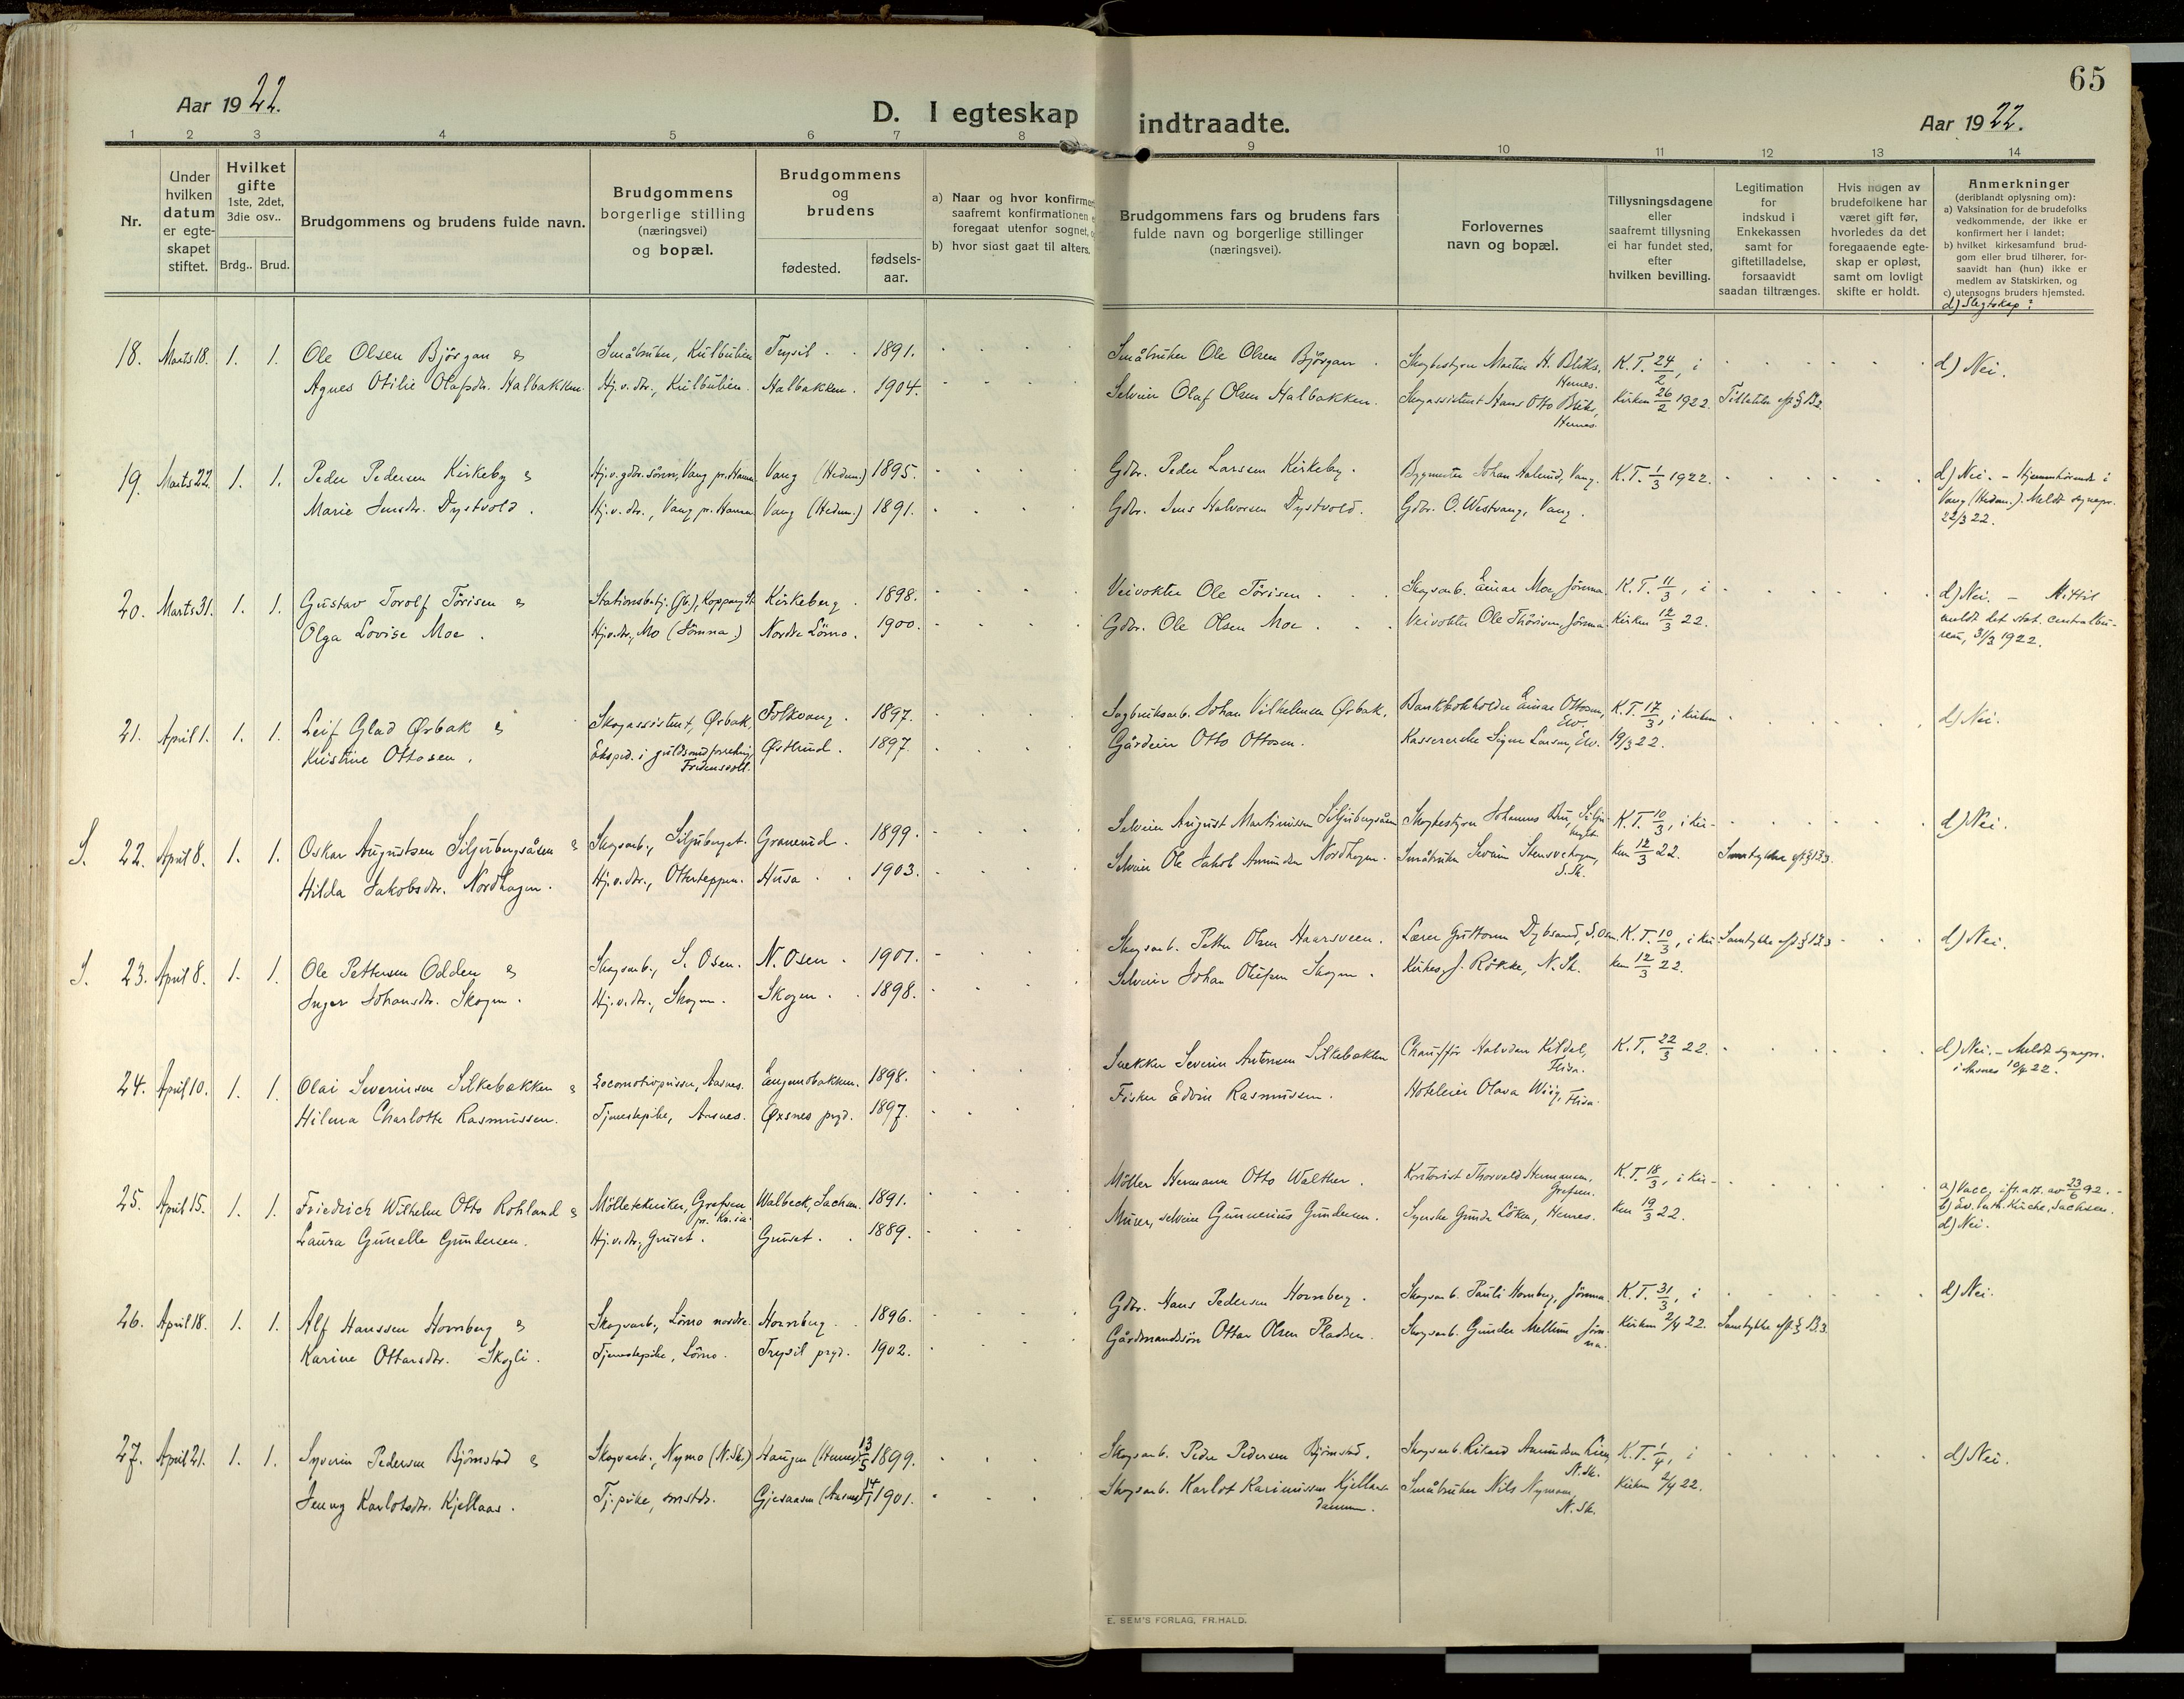 65
Aar 1922.
D. I egteskap indtraadte.
Aar 1922.
1 2 3 4 5 6 7 8 9 10 11 12 13 14
Nr.
Under
hvilken
datum
er egte-
skapet
stiftet.
Hvilket
gifte
1ste, 2det,
3die osv..
Brdg.. Brud.
Brudgommens og brudens fulde navn.
Brudgommens
borgerlige stilling
(næringsvei)
og bopæl.
Brudgommens
og
brudens
fødested.
fødsels-
aar.
a) Naar og hvor konfirmert
saafremt konfirmationen
foregaat utenfor sognet,
b) hvor sidst gaat til alters.
Brudgommens fars og brudens fars
fulde navn og borgerlige stillinger
(næringsvei).
Forlovernes
navn og bopæl.
Tillysningsdagene
eller
saafremt tillysning
ei har fundet sted,
efter
hvilken bevilling.
Legitimation
for
indskud i
Enkekassen
samt for
giftetilladelse,
forsaavidt
saadan tiltrænges.
Hvis nogen av
brudefolkene har
været gift før,
hvorledes da det
foregaaende egte-
skap er opløst,
samt om lovligt
skifte er holdt.
Anmerkninger
(deriblandt oplysning om):
a) Vaksination for de brudefolks
vedkommende, der ikke er
konfirmert her i landet;
b) hvilket kirkesamfund brud-
gom eller brud tilhører, for-
saavidt han (hun) ikke er
medlem av Statskirken, og
c) utensogns bruders hjemsted.
d) Slegtskap?
18. Marts 18. 1. 1. Ole Olsen Bjørgan & Småbruker, Kulbulien Trysil 1891. Småbruker Ole Olsen Bjørgan. Skogbestyrer Martin H. Bliks, Hernes. K.T. 24/2, i d) Nei.
Agnes Otilie Olafsdr. Halbakken. Hj.v. dtr., Kulbulien. Halbakken. 1904. Selveier Olaf Olsen Halbakken. Skogassistent Hans Otto Bliks, Hernes. Kirken 26/2 1922.
19. Marts 22. 1. 1. Peder Pedersen Kirkeby & Hj.v. gdbr. sönn, Vang pr. Hamar Vang (Hedm.) 1895. Gdbr. Peder Larssen Kirkeby. Bygmester Johan Aalerud, Vang. K.T. 1/3 1922. d) Nei. - Hjemmhörende i
Marie Jensdr. Dystvold. Hj.v. dtr., Vang pr. Hamar Vang (Hedm.) 1891. Gdbr. Jens Halvorsen Dystvold. Gdbr. O. Westvang, Vang. Vang (Hedm.). Meldt sognepr.
22/3 22.
20. Marts 31. 1. 1. Gustav Torolf Törisen & Kirkeberg. 1898. Veivokter Ole Törisen. Skogsarb. Einar Moe, Jömna. K.T. 11/3, i d) Nei. -
Olga Lovise Moe. Hj.v.dtr., Mo (Jömna) Nordre Lömo. 1900. Gdbr. Ole Olsen Moe. Veivokter Ole Thörisen, Jömna. Kirken 12/3 22. meldt det stat. centralbu-
reau, 31/3 1922.
21. April 1. 1. 1. Leif Glad Ørbak & Skogassistent, Ørbak. Folkvang. 1897. Sagbruksarb. Johan Vilhelmsen Ørbak. Bankbokholder Einar Ottosen, Elv. K.T. 17/3, i kirken d) Nei.
Kristine Ottosen. Eksped. i guldsmedforretning Østlund. 1897. Gårdeier Otto Ottosen. Kassererske Signe Larsen, Elv. 19/3 22.
S. 22. April 8. 1. 1. Oskar Augustsen Siljubergsåsen & Skogsarb., Siljuberget. Graneud. 1899. Selveier August Martinissen Siljubergsåsen K.T. 10/3, i kir- d) Nei.
Hilda Jakobsdr. Nordhagen. Hj.v.dtr., Otterteppen. Husa 1903. Selveier Ole Jakob Amundsen Nordhagen. S.Sk. ken 12/3 22. Samtykke eft. § 13.3.
S. 23. April 8. 1. 1. Ole Pettersen Odden & Skogsarb., S. Osen. N. Osen. 1901. Skogsarb. Petter Olsen Haarsveen. Lærer Guttorm Dybsand, S. Osen. K.T. 10/3, i kir- Samtykke eft. § 13.3 d) Nei.
Inger Johansdr. Skogen. Hj.v.dtr., Skogen. Skogen. 1898. Selveier Johan Olufsen Skogen. Kirkes. J. Røkke, N. Sk. ken 12/3 22.
24. April 10. 1. 1. Olai Severinsen Silkebækken & Locomotivpusser, Aasnes. Engemobakken. 1898. Snekker Severin Antonsen Silkebækken Chauffør Halvdan Kildal, Flisa. K.T. 22/3 22. d) Nei. - Meldt sognepr.
Hilma Charlotte Rasmussen. Tjenestepike, Aasnes. Øxsnes prgd. 1897. Fisker Edvin Rasmussen. Hoteleier Olava Wiig, Flisa. i Aasnes 10/4 22.
25. April 15. 1. 1. Friedrich Wilhelm Otto Rohland & Mölletekniker, Grefsen pr. Kr.ia. Walbeck, Sachsen. 1891. Möller Hermann Otto Walther. Kontorist Thorvald Hermansen, Grefsen. K.T. 18/3, i kir- a) Vacc. ifr. att. av 23/6 92. -
Laura Gunelle Gundersen. Hj.v.dtr., Grüset. Grüset. 1889. Murer, selveier Gunnerius Gundersen. Syerske Gunda Löken, Hernes. ken 19/3 22. b) Ev. luth. Kirche, Sachsen.
d) Nei.
26. April 18. 1. 1. Alf Hanssen Hornberg & Skogsarb., Lömo nordre. Hornberg. 1896. Gdbr. Hans Pedersen Hornberg. Skogsarb. Pauli Hornberg, Jömna. K.T. 31/3, i d) Nei.
Karine Ottarsdtr. Skogli. Tjenestepike, Lömo. Trysil prgd. 1902. Gårdmandssön Ottar Olsen Pladsen. Skogsarb. Gunder Mellum Jöm-
na. Kirken 2/4 22. Samtykke eft. § 13.3.
27. April 21. 1. 1. Syverin Pedersen Bjørnstad & Skogsarb., Nymo (N.Sk.) Haugen (Hernes) 13/5 1899. Skogsarb. Peder Pedersen Bjørnstad. Skogsarb. Rikard Amundsen Lien, N.Sk. K.T. 1/4, i d) Nei.
Jenny Karlotsdtr. Kjellaas. Tj.pike, smstds. Gjesaasen (Aasnes) 14/1 1901. Skogsarb. Karlot Karinussen Kjellaas- Småbruker Nils Nymoen, N.Sk. Kirken 2/4 22.
E. SEM'S FORLAG, FR.HALD.